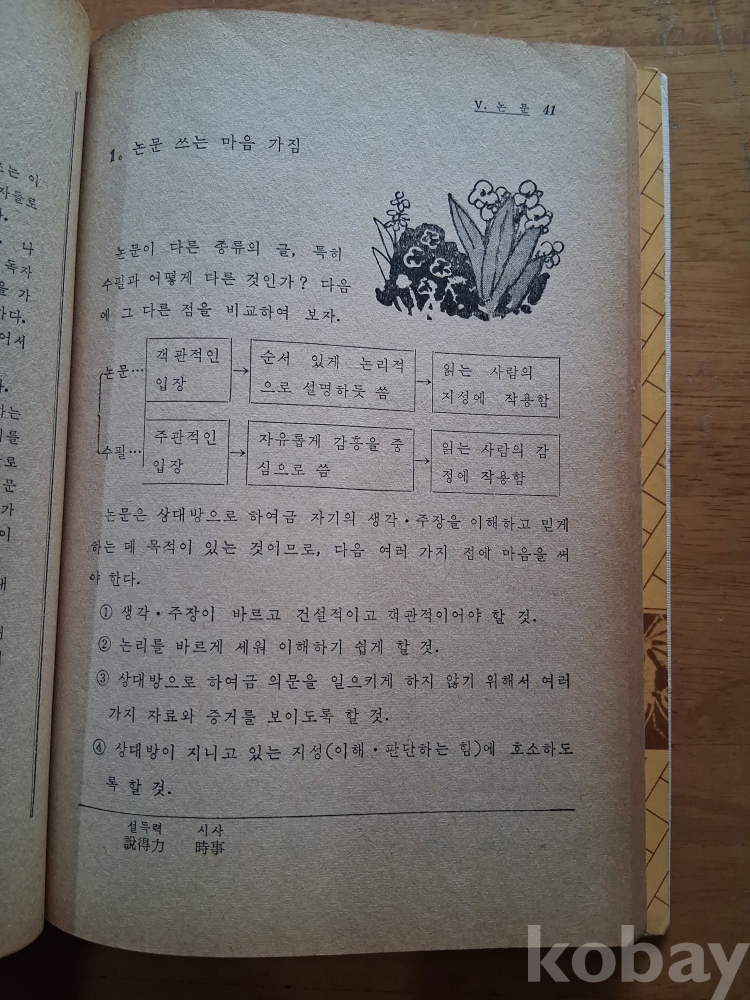 V. 논 문 41
1. 논문 쓰는 마음 가짐
논문이 다른 종류의 글, 특히
수필과 어떻게 다른 것인가? 다음
에 그 다른 점을 비교하여 보자.
논문… 객관적인 입장 → 순서 있게 논리적으로 설명하듯 씀 → 읽는 사람의 지성에 작용함
수필… 주관적인 입장 → 자유롭게 감흥을 중심으로 씀 → 읽는 사람의 감정에 작용함
논문은 상대방으로 하여금 자기의 생각·주장을 이해하고 믿게
하는 데 목적이 있는 것이므로, 다음 여러 가지 점에 마음을 써
야 한다.
① 생각·주장이 바르고 건설적이고 객관적이어야 할 것.
② 논리를 바르게 세워 이해하기 쉽게 할 것.
③ 상대방으로 하여금 의문을 일으키게 하지 않기 위해서 여러
가지 자료와 증거를 보이도록 할 것.
④ 상대방이 지니고 있는 지성(이해·판단하는 힘)에 호소하도
록 할 것.
설득력 시사
說得力 時事
kobay